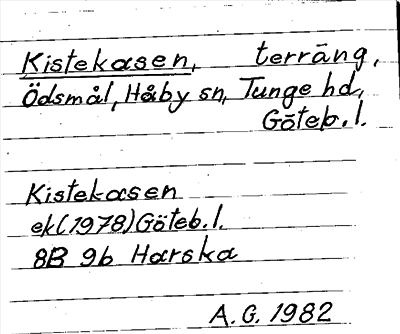 Kistekasen, terräng,
Ödsmål, Håby sn, Tunge hd,
Göteb. l.
Kistekasen
ek (1978) Göteb. l.
8B 9b Harska
A. G. 1982